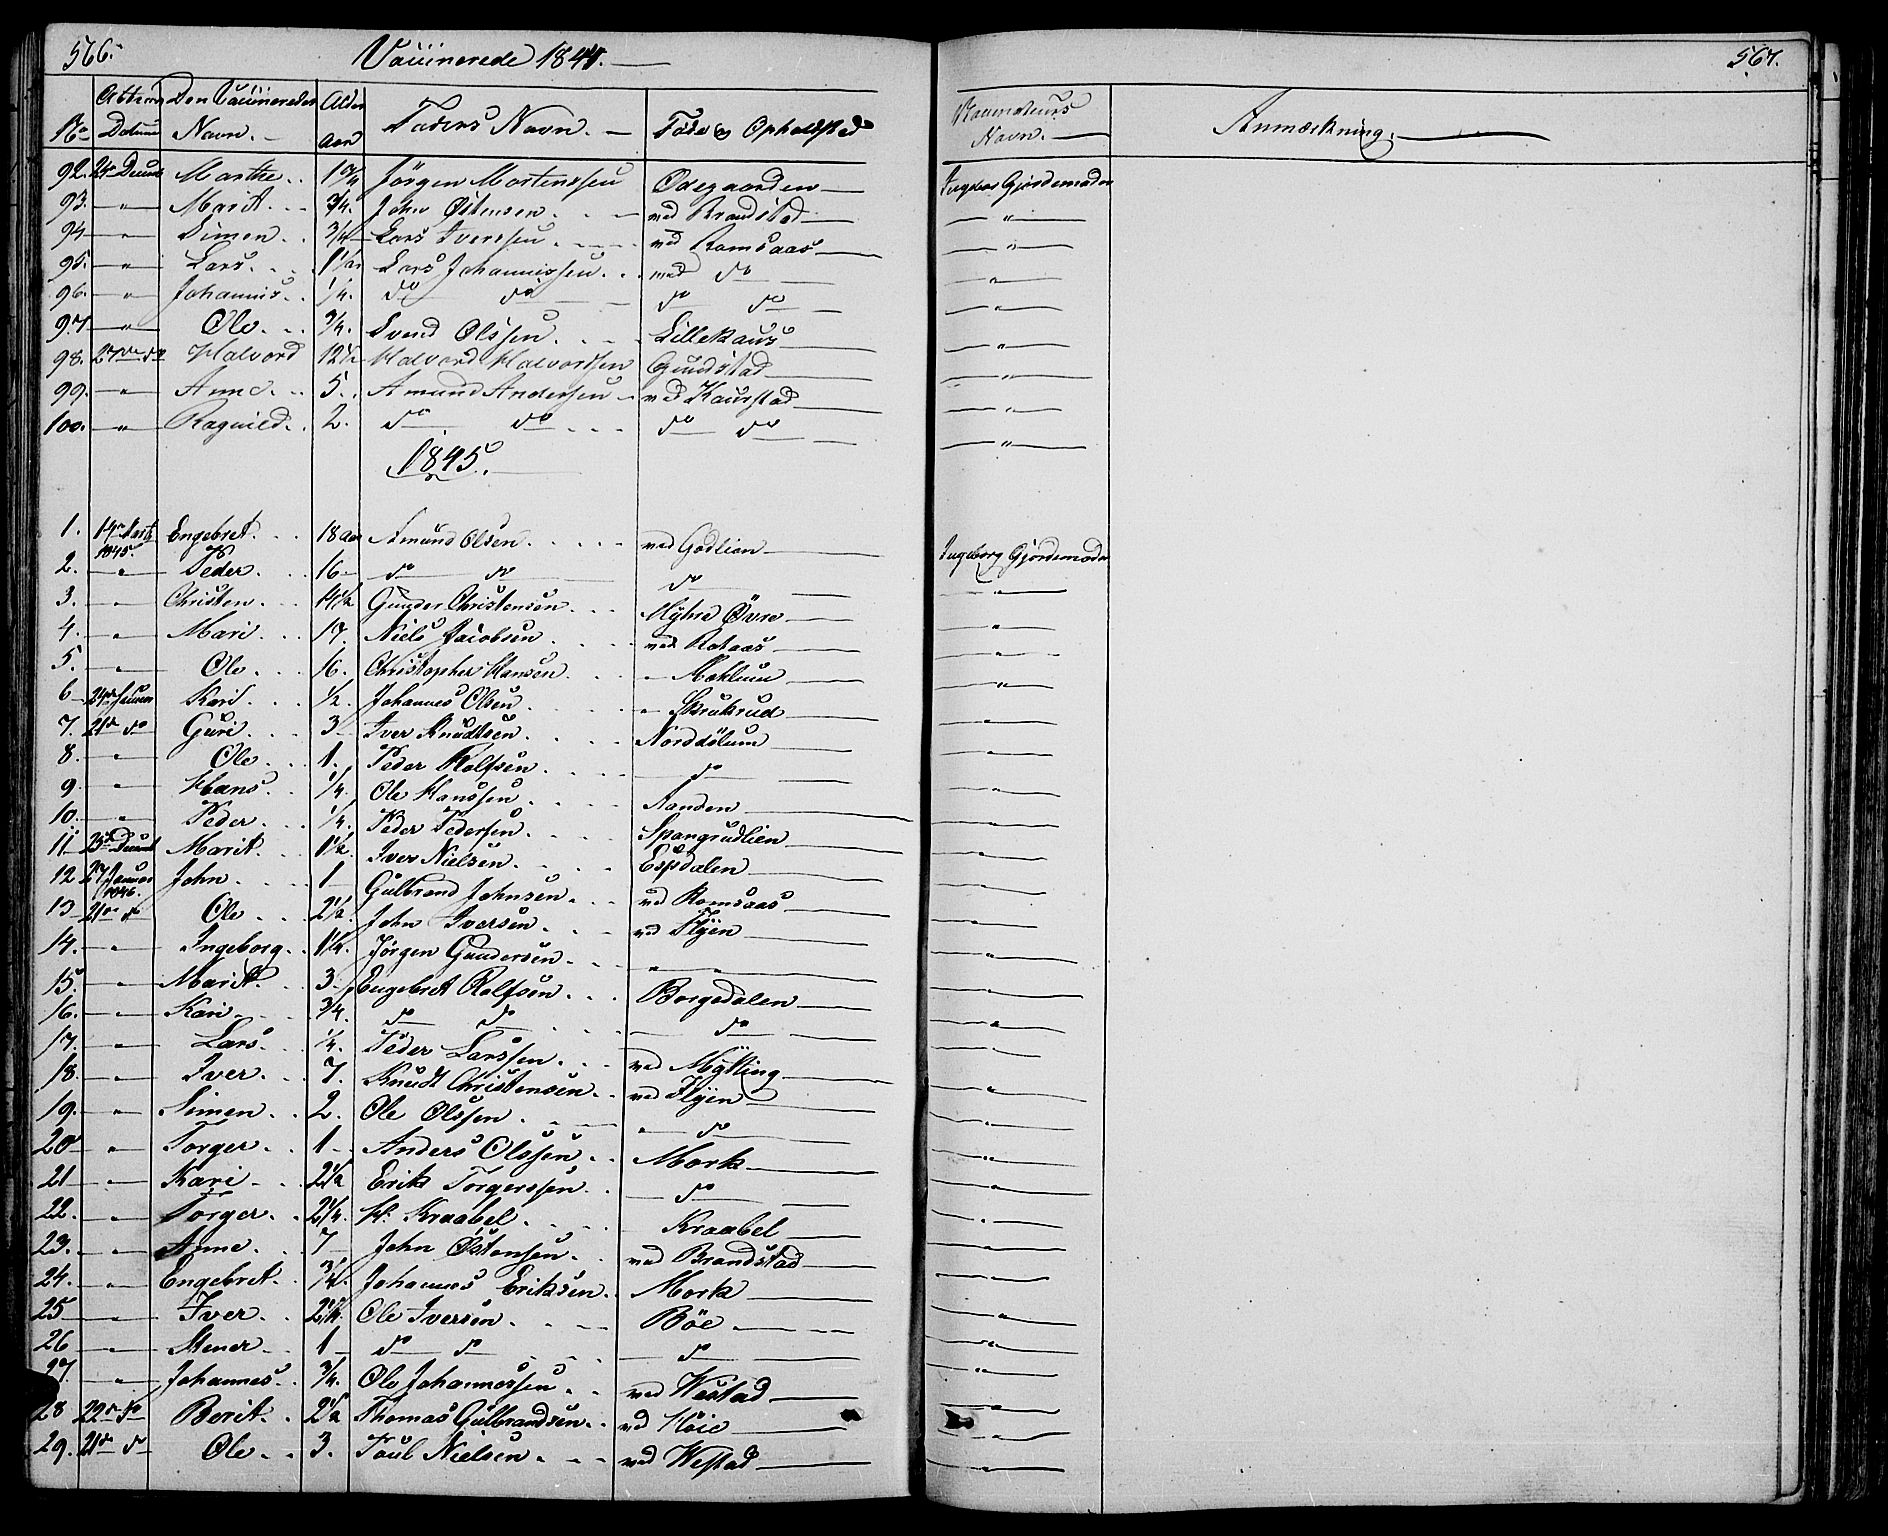 566. Vaccinerede 1844. 567.
No Datum Den Vaccineredes Navn. Alder Aar Faders Navn. Føde og Opholdsted Vaccinateurs Navn. Anmærkning.
92. 24 Decemb Marthe Jörgen Mortenssen Ødegaarden Gjordemoder
93. " Marit 3/4. John Østensen ved Brandstad "
94 " Simen 3/4 Lars Iverssen ved Romsaas "
95. " Lars 1 1/2 Lars Johannissen ved do "
96. " Johannis 1/4. do do do do "
97 " Ole 3/4. Svend Olssen Lillekaus "
98. 27de do Halvord 12 1/2 Halvord Halvordsen Gundstad "
99. " Anne 5. Amund Andersen ved Kaurstad "
100. " Ragnild 2. do do do do "
1845.
1. 14 Marts 1845. Engebret 18 Aar Amund Olsen ved Godlien Ingeborg Gjordemoder
2. " Peder 16 do do do "
3. " Christen 14 1/2 Gunder Christensen Myhre Övre "
4. " Mari 17. Niels Jacobsen ved Rotaas "
5. " Ole 16. Christopher Hansen " Moklum "
6 24de Januar Kari 1/2. Johannes Olsen " Skrukrud "
7. 21de do Guri 3 Iver Knudtsen Norddölum "
8. " Ole 1. Peder Rolfsen do "
9 " Hans 1/4. Ole Hanssen Aanden "
10. " Peder 1/4. Peder Pedersen Spangrudlien "
11 23de Decemb Marit 1 1/2. Iver Nielsen Espdalen "
12 27 Januar 1846. John 1 Gulbrand Johnsen ved Romsaas "
13 21de do Ole 2 1/2 John Iversen ved Flyen "
14. " Ingeborg 1 1/4. Jörgen Gundersen " " "
15. " Marit 3 Engebret Rolfsen Borgedalen "
16. " Kari 3/4. do do do "
17. " Lars 1/4. Peder Larssen ved Mytting "
18. " Iver 7. Knudt Christensen ved Flyen "
19. " Simen 2. Ole Olssen " do "
20 " Torger 1 Anders Olssen Mork "
21 " Kari 2 1/2 Erik Torgerssen do "
22. " Torger 2 1/4. H. Kraabel Kraabel "
23. " Anne 7 John Östensen ved Brandstad "
24. " Engebret 3/4. Johannes Eriksen Mork "
25 " Iver 2 1/4. Ole Iversen Böe "
26 " Mener 1 do do do "
27. " Johannes 3/4. Ole Johannessen ved Westad "
28 22de do Berit 2 1/2 Thomas Gulbrandsen ved Höie "
29. 21de do Ole 3. Poul Nielsen ved Westad "